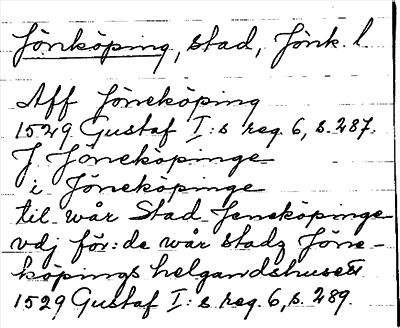 Jönköping, stad, Jönk. l
Aff Jöneköping
1529 Gustaf I:s reg. 6, s. 287.
J Jöneköpinge
i Jöneköpinge
til wår Stad Jeneköpinge
vdj för:de wår stadz Jöne-
köpings helgandshuse
1529 Gustaf I:s reg. 6, s. 289.